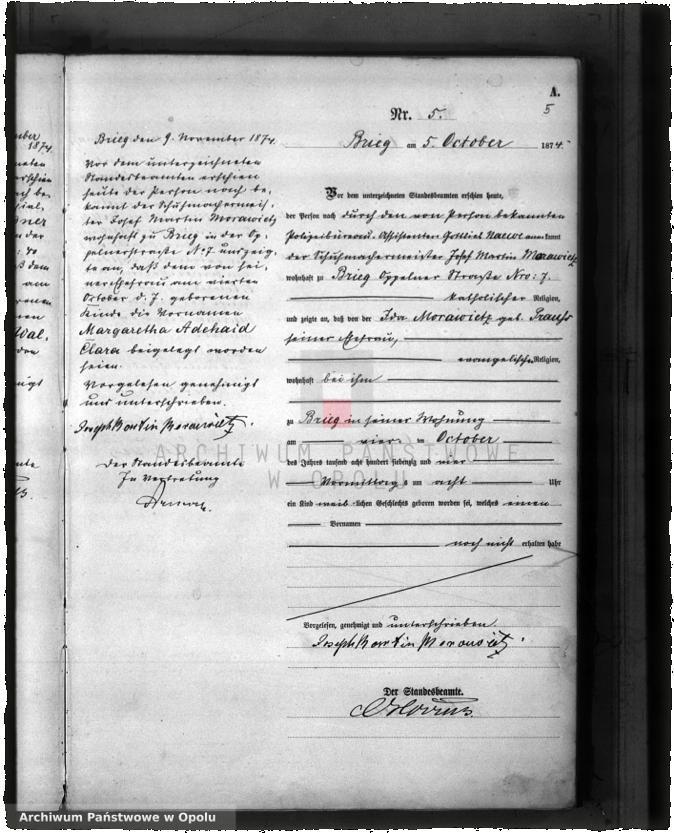 A.
5
Nr. 5.
Brieg am 5. October 1874.
Vor dem unterzeichneten Standesbeamten erschien heute,
der Person nach durch den von Person bekannten
Polizeibureau-Assistenten Gottlieb kannt
der Schuhmachermeister Josef Martin Morawietz
wohnhaft zu Brieg Oppelner Straße Nro: 7.
katholischer Religion,
und zeigte an, daß von der Ida Morawietz geb.
seiner Ehefrau,
evangelische Religion,
wohnhaft bei ihm
zu Brieg in seiner Wohnung
am vier ten October
des Jahres tausend acht hundert siebenzig und vier
Vormittags um acht Uhr
ein Kind weib lichen Geschlechts geboren worden sei, welches einen
Vornamen
noch nicht erhalten habe
Vorgelesen, genehmigt und unterschrieben.
Joseph Martin Morawietz.
Der Standesbeamte.
Brieg den 9. November 1874.
Vor dem unterzeichneten
Standesbeamten erschien
heute der Person nach be-
kannt der Schuhmachermeis-
ter Josef Martin Morawietz
wohnhaft zu Brieg in der Op-
pelnerstraße N: 7 und zeig-
te an, daß dem von sei-
ner Ehefrau am vierten
October d. J. geborenen
Kinde die Vornamen
Margaretha Adehaid
Clara beigelegt worden
seien.
Vorgelesen genehmigt
und unterschrieben.
Joseph Martin Morawietz.
Der Standesbeamte
In Vertretung
ARCHIWUM PAŃSTWOWE
W OPOLU
Archiwum Państwowe w Opolu